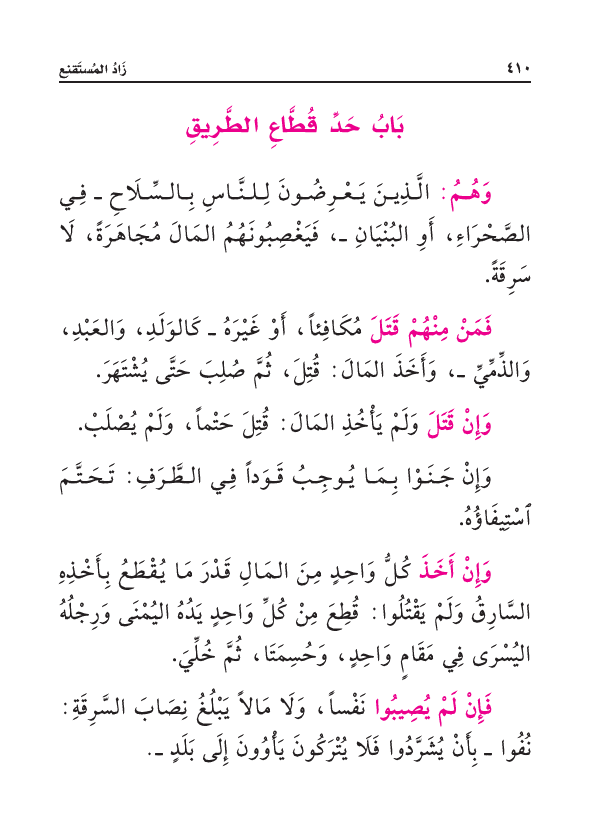 ٤١٠
زَادُ المُستَقنِع
بَابُ حَدِّ قُطَّاعِ الطَّرِيقِ
وَهُمُ: الَّذِينَ يَعْرِضُونَ لِلنَّاسِ بِالسِّلَاحِ ـ فِي
الصَّحْرَاءِ، أَوِ البُنْيَانِ ـ، فَيَغْصِبُونَهُمُ المَالَ مُجَاهَرَةً، لَا
سَرِقَةً.
فَمَنْ مِنْهُمْ قَتَلَ مُكَافِئاً، أَوْ غَيْرَهُ ـ كَالوَلَدِ، وَالعَبْدِ،
وَالذِّمِّيِّ ـ، وَأَخَذَ المَالَ: قُتِلَ، ثُمَّ صُلِبَ حَتَّى يُشْتَهَرَ.
وَإِنْ قَتَلَ وَلَمْ يَأْخُذِ المَالَ: قُتِلَ حَتْماً، وَلَمْ يُصْلَبْ.
وَإِنْ جَنَوْا بِمَا يُوجِبُ قَوَداً فِي الطَّرَفِ: تَحَتَّمَ
ٱسْتِيفَاؤُهُ.
وَإِنْ أَخَذَ كُلُّ وَاحِدٍ مِنَ المَالِ قَدْرَ مَا يُقْطَعُ بِأَخْذِهِ
السَّارِقُ وَلَمْ يَقْتُلُوا: قُطِعَ مِنْ كُلِّ وَاحِدٍ يَدُهُ اليُمْنَى وَرِجْلُهُ
اليُسْرَى فِي مَقَامٍ وَاحِدٍ، وَحُسِمَتَا، ثُمَّ خُلِّيَ.
فَإِنْ لَمْ يُصِيبُوا نَفْساً، وَلَا مَالاً يَبْلُغُ نِصَابَ السَّرِقَةِ:
نُفُوا ـ بِأَنْ يُشَرَّدُوا فَلَا يُتْرَكُونَ يَأْوُونَ إِلَى بَلَدٍ ـ.